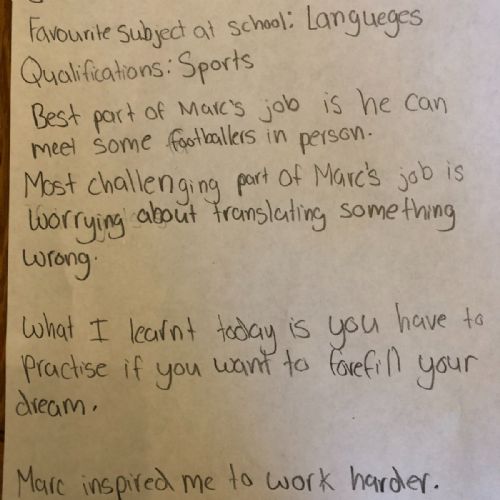 Favourite subject at school: Langueges
Qualifications: Sports
Best part of Marc's job is he can
meet some footballers in person.
Most challenging part of Marc's job is
worrying about translating something
wrong.
What I learnt today is you have to
practise if you want to forefill your
dream.
Marc inspired me to work harder.